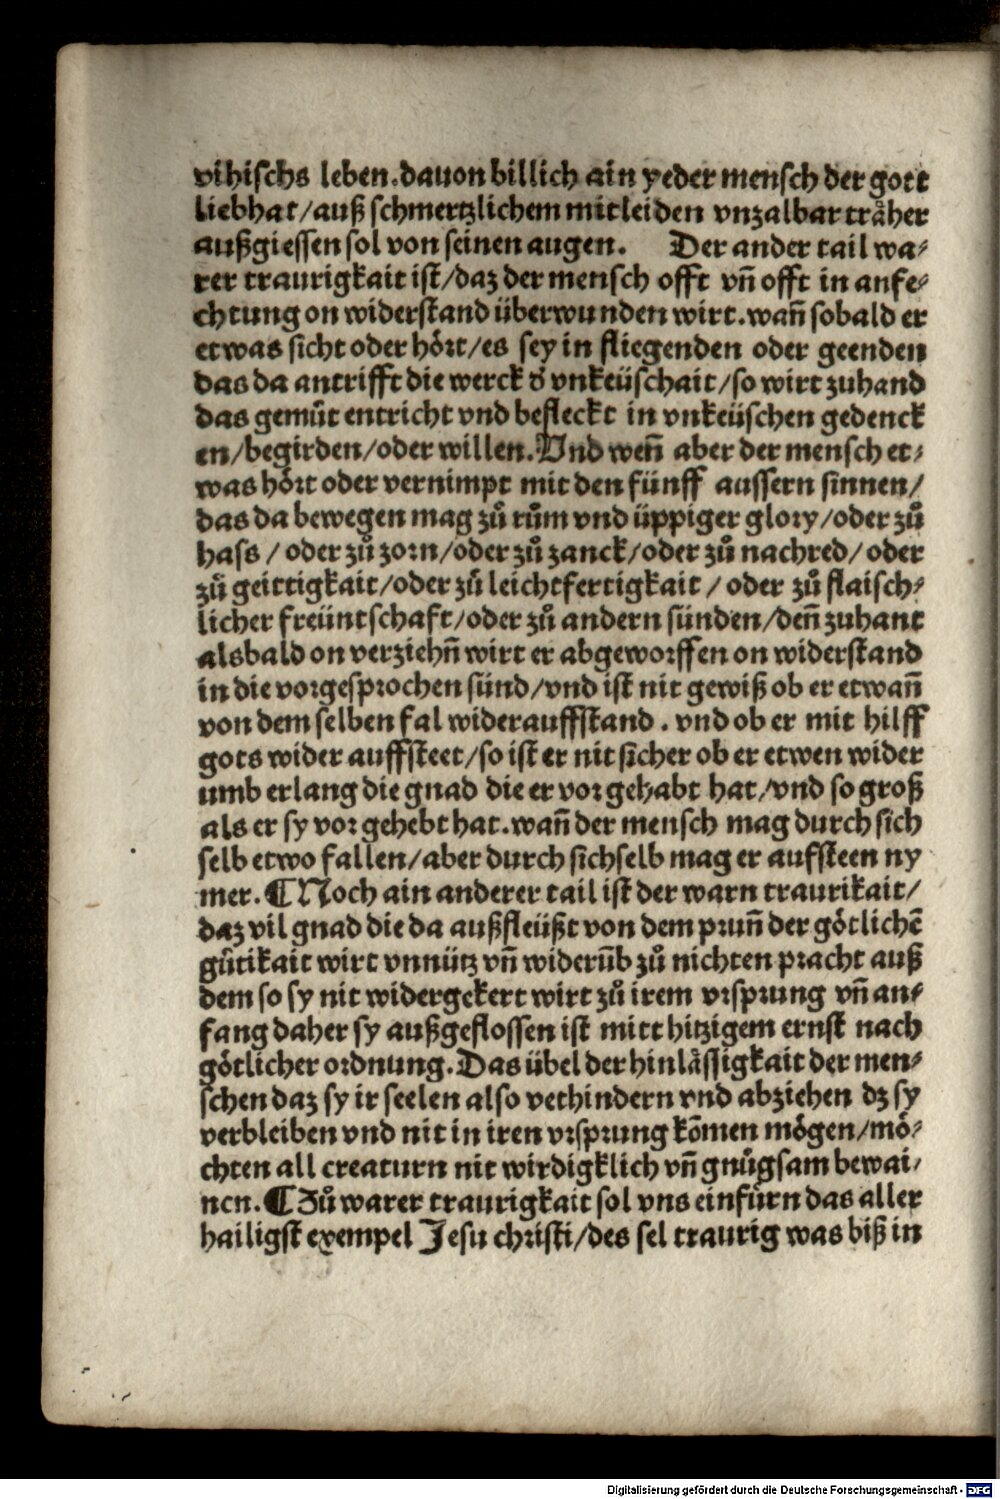 vihischs leben.dauon billich ain yeder mensch der gott
liebhat/auß schmertzlichem mitleiden vnzalbar träher
außgiessen sol von seinen augen. Der ander tail wa⸗
rer traurigkait ist/daz der mensch offt vn̄ offt in anfe⸗
chtung on widerstand überwunden wirt.wan̄ sobald er
etwas sicht oder hört/es sey in fliegenden oder geenden
das da antrifft die werck d' vnkeüschait/so wirt zuhand
das gemůt entricht vnd befleckt in vnkeüschen gedenck
en/begirden/oder willen.Vnd wen̄ aber der mensch et⸗
was hört oder vernimpt mit den fünff aussern sinnen/
das da bewegen mag zů rům vnd üppiger glory/oder zů
hass / oder zů zorn/oder zů zanck/oder zů nachred/ oder
zů geittigkait/oder zů leichtfertigkait / oder zů flaisch⸗
licher freüntschaft/oder zů andern sünden/den̄ zuhant
alsbald on verziehn̄ wirt er abgeworffen on widerstand
in die vorgesprochen sünd/vnd ist nit gewiß ob er etwan̄
von dem selben fal widerauffstand . vnd ob er mit hilff
gots wider auffsteet/so ist er nit sicher ob er etwen wider
umb erlang die gnad die er vor gehabt hat/vnd so groß
als er sy vor gehebt hat.wan̄ der mensch mag durch sich
selb etwo fallen/aber durch sichselb mag er aufsteen ny
mer. ¶Noch ain anderer tail ist der warn traurikait/
daz vil gnad die da außfleüßt von dem prun̄ der götlichē
gůtikait wirt vnnütz vn̄ widerūb zů nichten pracht auß
dem so sy nit widergekert wirt zů irem vrsprung vn̄ an⸗
fang daher sy außgeflossen ist mitt hitzigem ernst nach
götlicher ordnung.Das übel der hinlässigkait der men⸗
schen daz sy ir seelen also verhindern vnd abziehen dz sy
verbleiben vnd nit in iren vrsprung kōmen mögen/mö⸗
chten all creaturn nit wirdigklich vn̄ gnůgsam bewai⸗
nen.¶Zů warer traurigkait sol vns einfürn das aller
hailigst exempel Jesu christi/des sel traurig was biß in
Digitalisierung gefördert durch die Deutsche Forschungsgemeinschaft - DFG